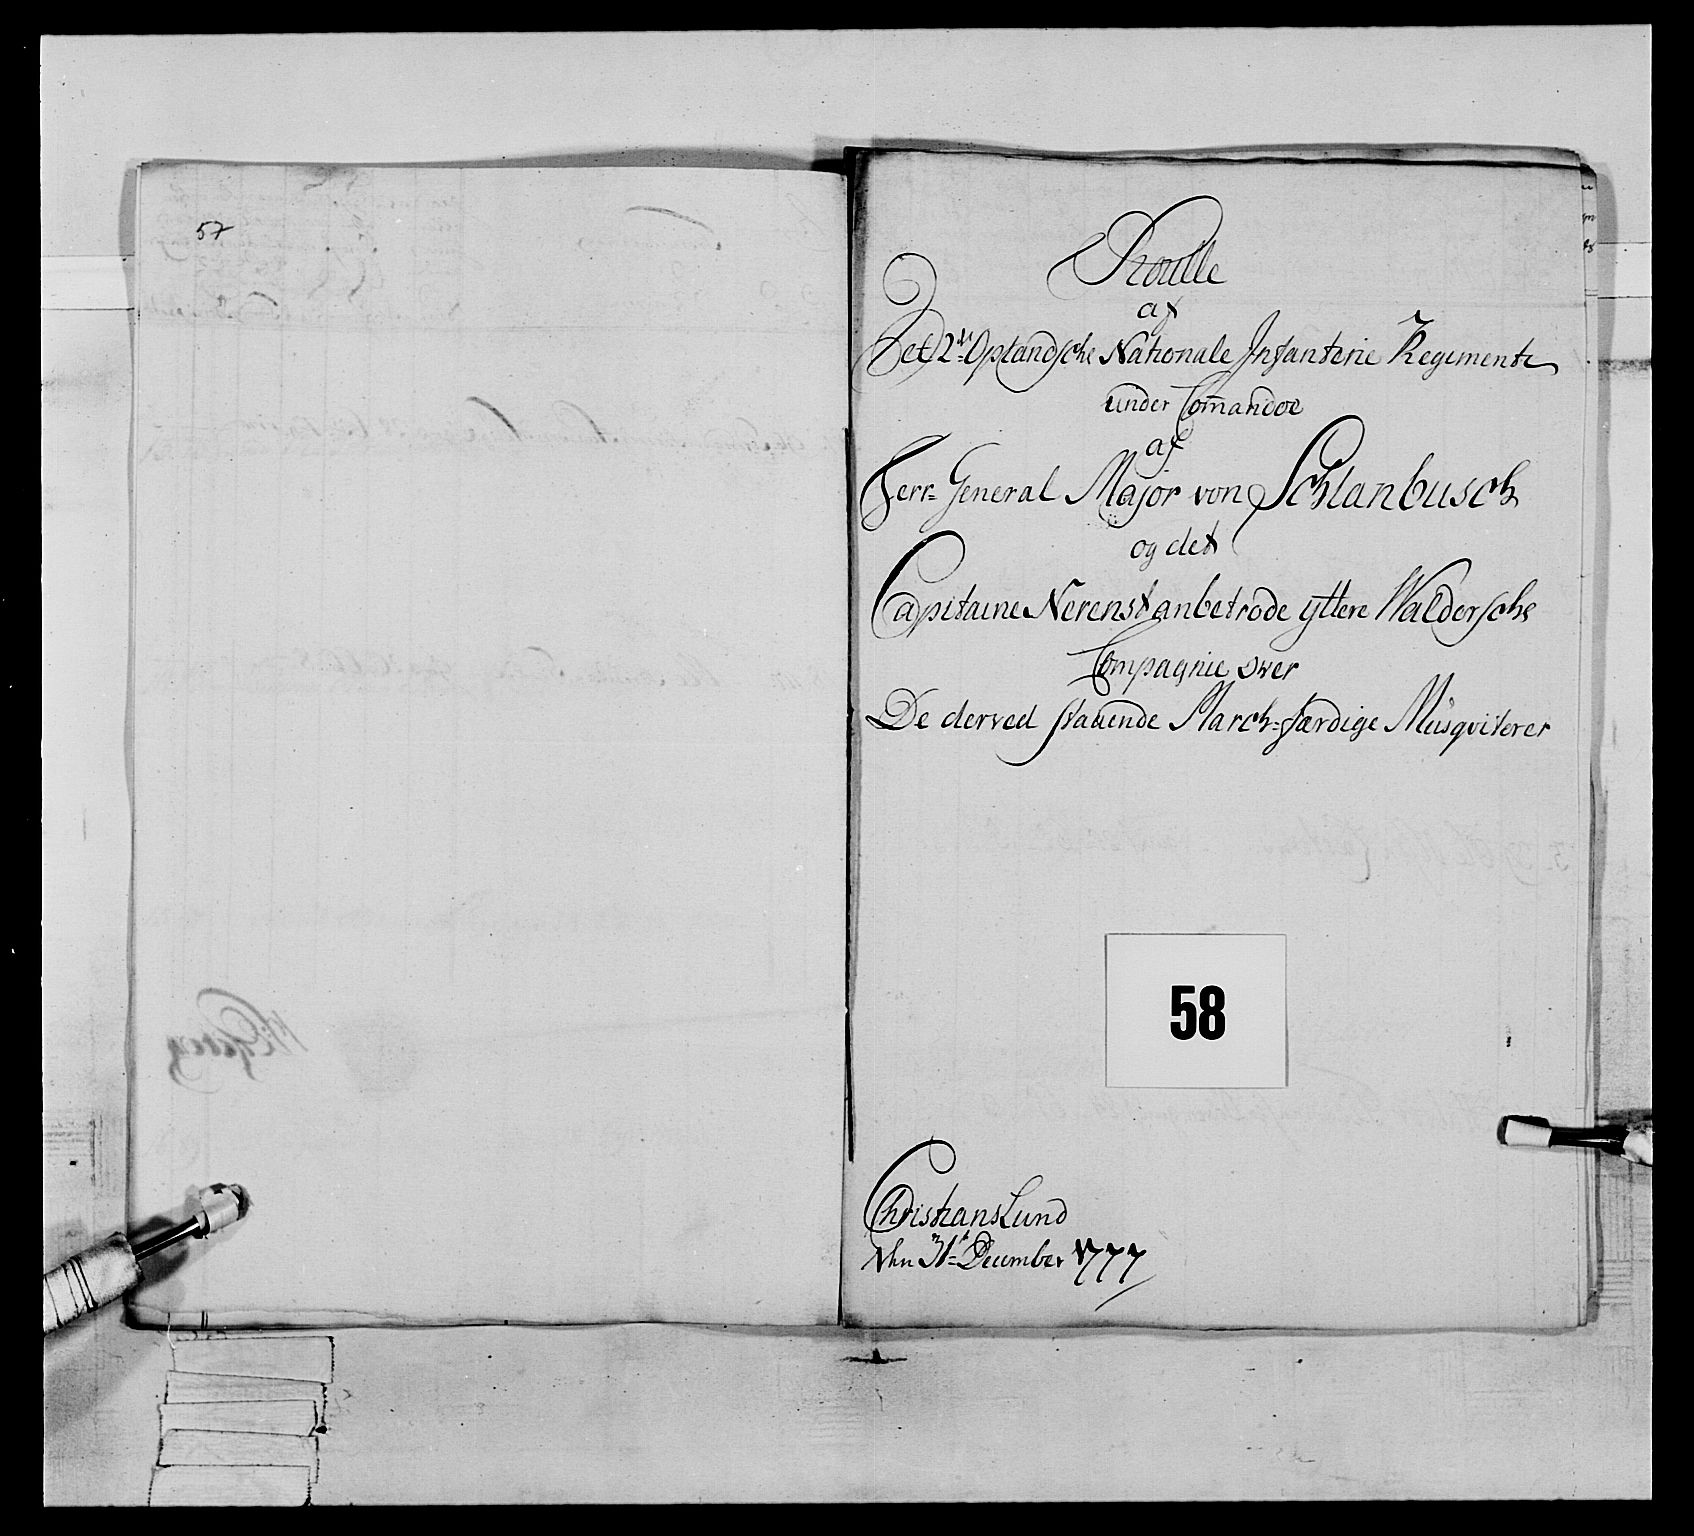 57
Roulle
af
Det 2de Oplandsche Nationale Infanterie Regiments
under Com̄andoe
af
Herr General Major von Schlanbusch
og det
Capitaine Nerenst anbetrode yttere Waldersche
Compagnie over
De derved staaende March-færdige Musqviterer
58
ChristiansLund
den 31te December 1777